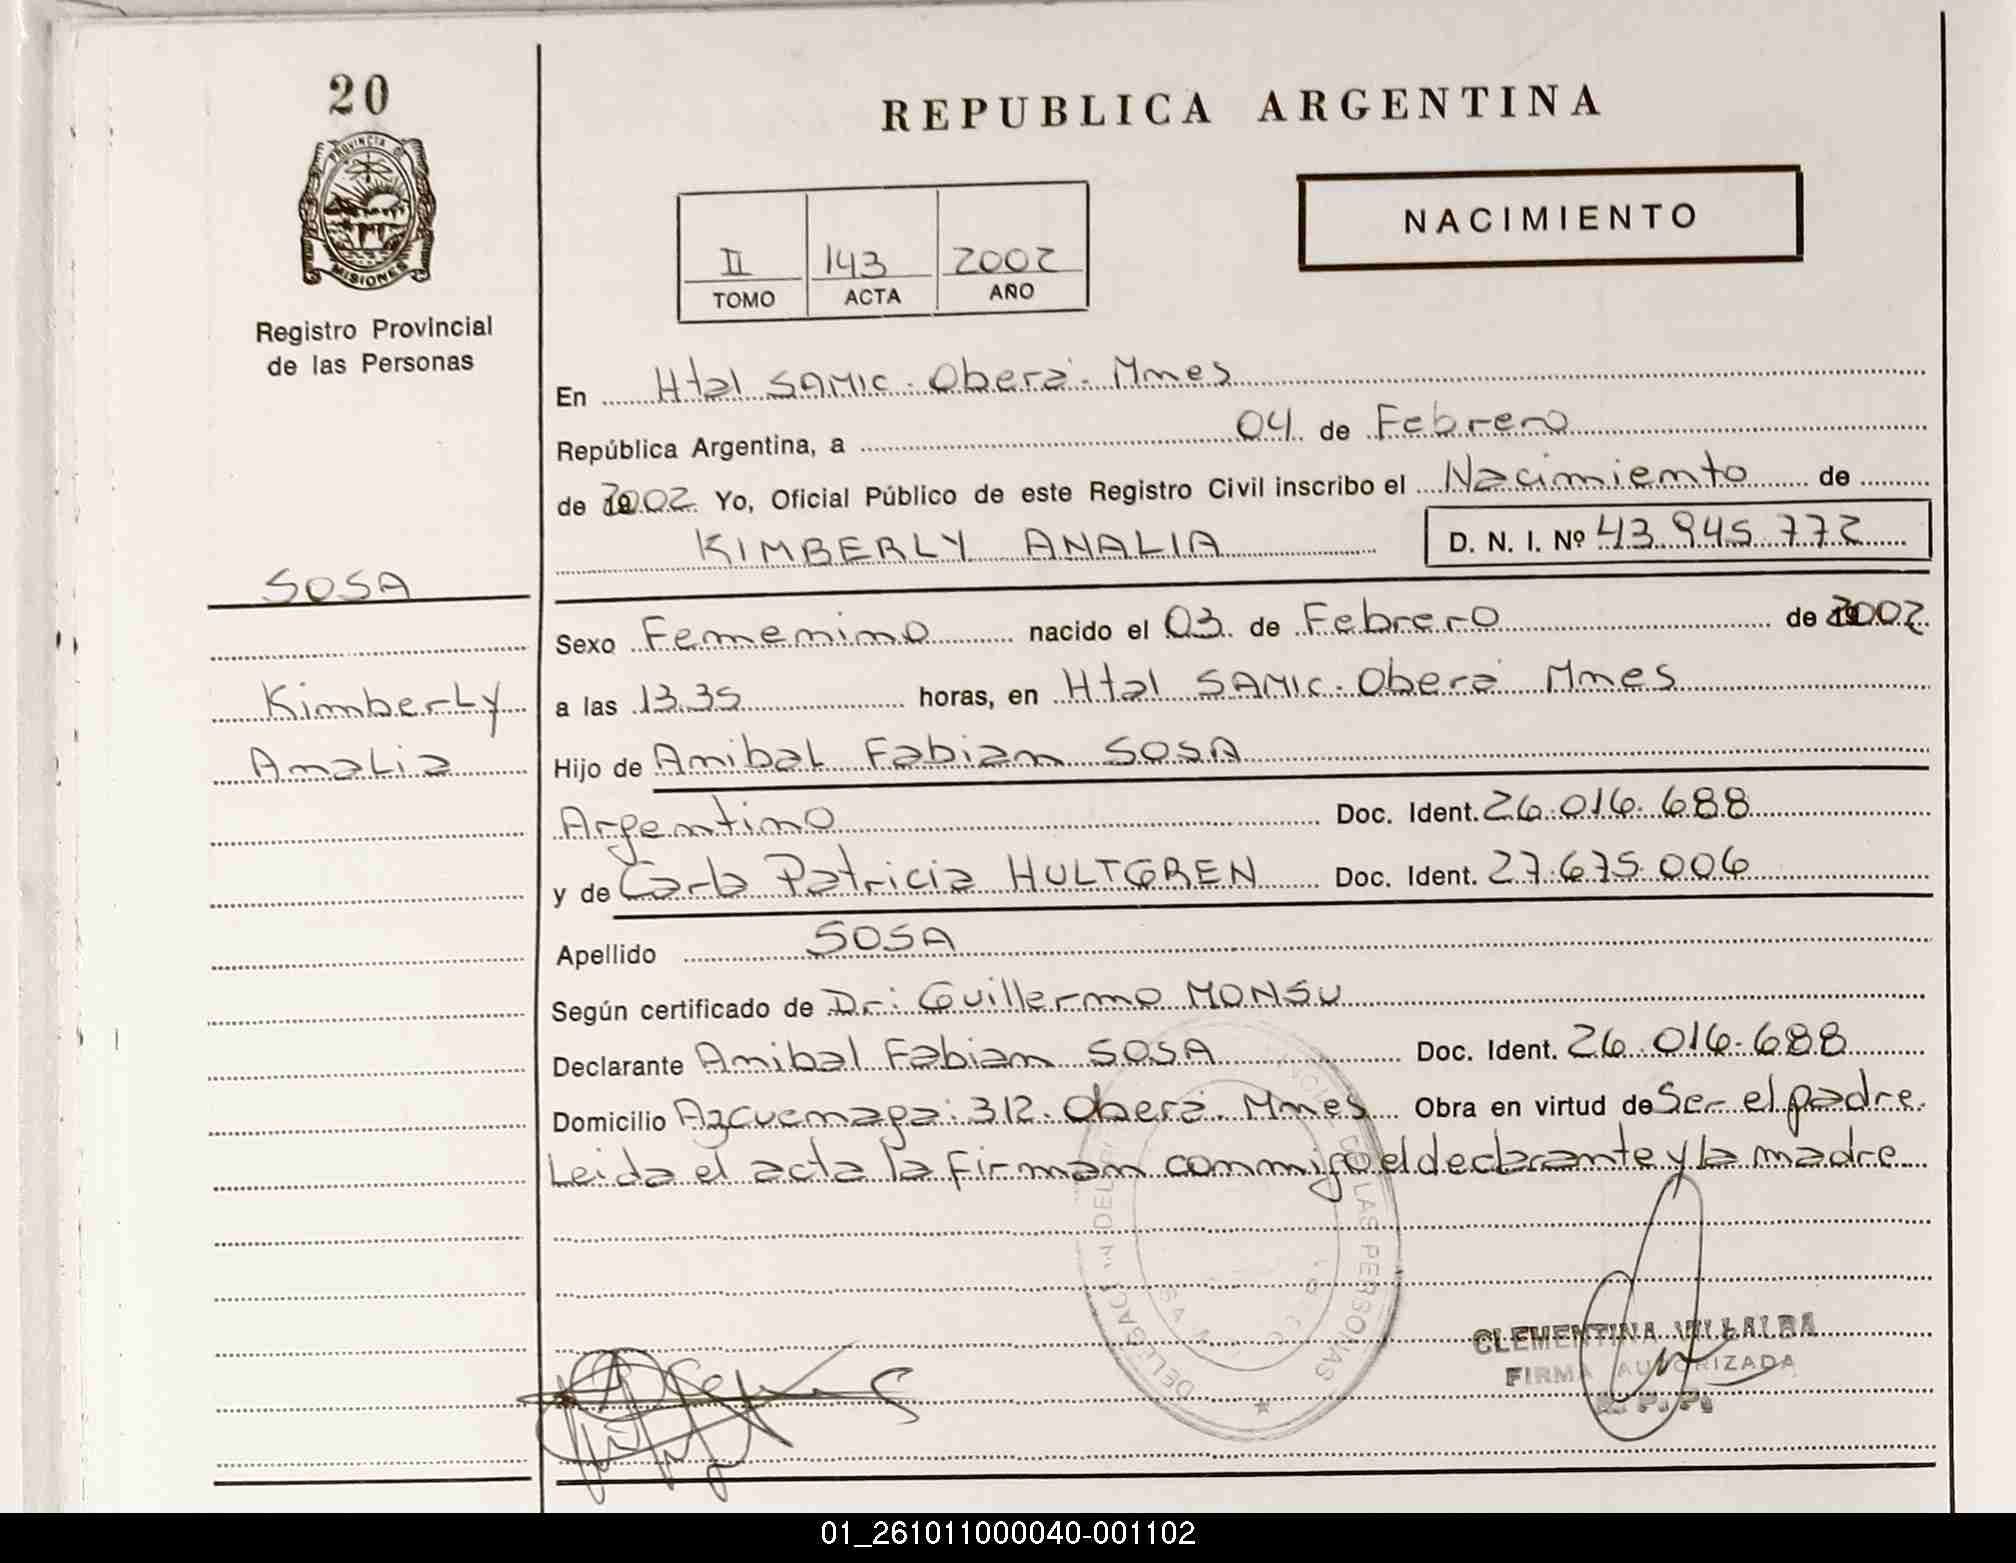 20
PROVINCIA DE
MISIONES
Registro Provincial
de las Personas
SOSA
Kimberly
Analia
REPUBLICA ARGENTINA
NACIMIENTO
II 143 2002
TOMO ACTA AÑO
En Htal SAMIC. Oberá. Mnes
República Argentina, a 04 de Febrero
de 2002 Yo, Oficial Público de este Registro Civil inscribo el Nacimiento de
KIMBERLY ANALIA D. N. I. Nº 43.945.772
Sexo Femenino nacido el 03 de Febrero de 2002
a las 13.35 horas, en Htal SAMIC. Oberá Mnes
Hijo de Anibal Fabian SOSA
Argentino Doc. Ident. 26.016.688
y de Carla Patricia HULTGREN Doc. Ident. 27.675.006
Apellido SOSA
Según certificado de Dr: Guillermo MONSU
Declarante Anibal Fabian SOSA Doc. Ident. 26.016.688
Domicilio Azcuenaga: 312. Oberá. Mnes Obra en virtud de Ser el padre.
Leida el acta la firman conmigo el declarante y la madre
DE LAS PERSONAS
CLEMENTINA VILLALBA
FIRMA AUTORIZADA
R. P. P.
01_261011000040-001102